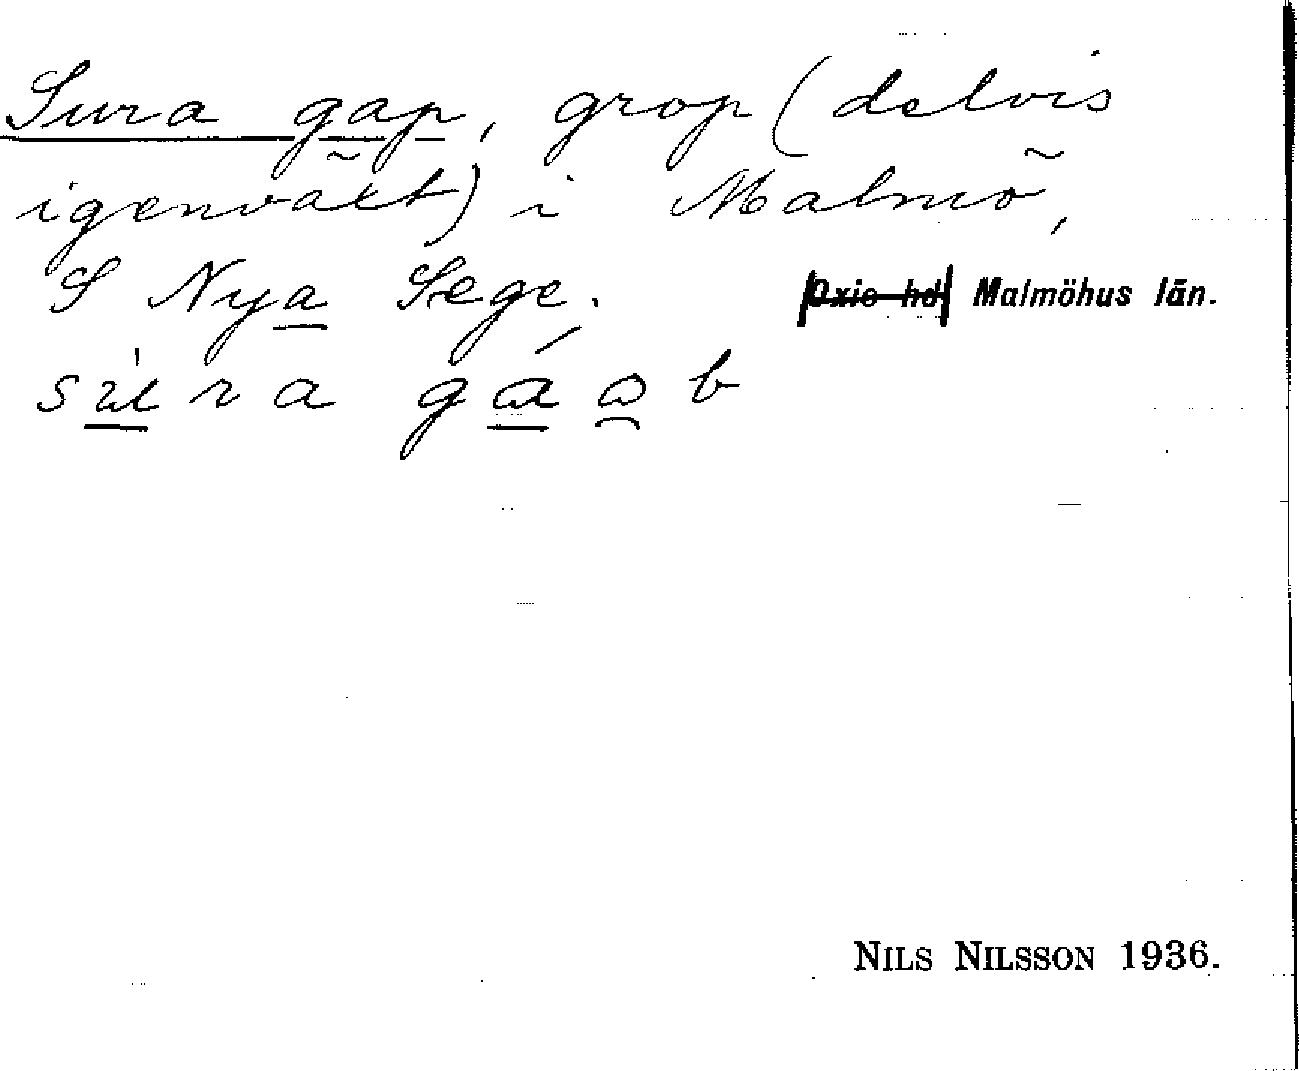 Sura gap, grop (delvis
igenväxt) i Malmö,
S Nya Sege. Oxie hd Malmöhus län.
NILS NILSSON 1936.